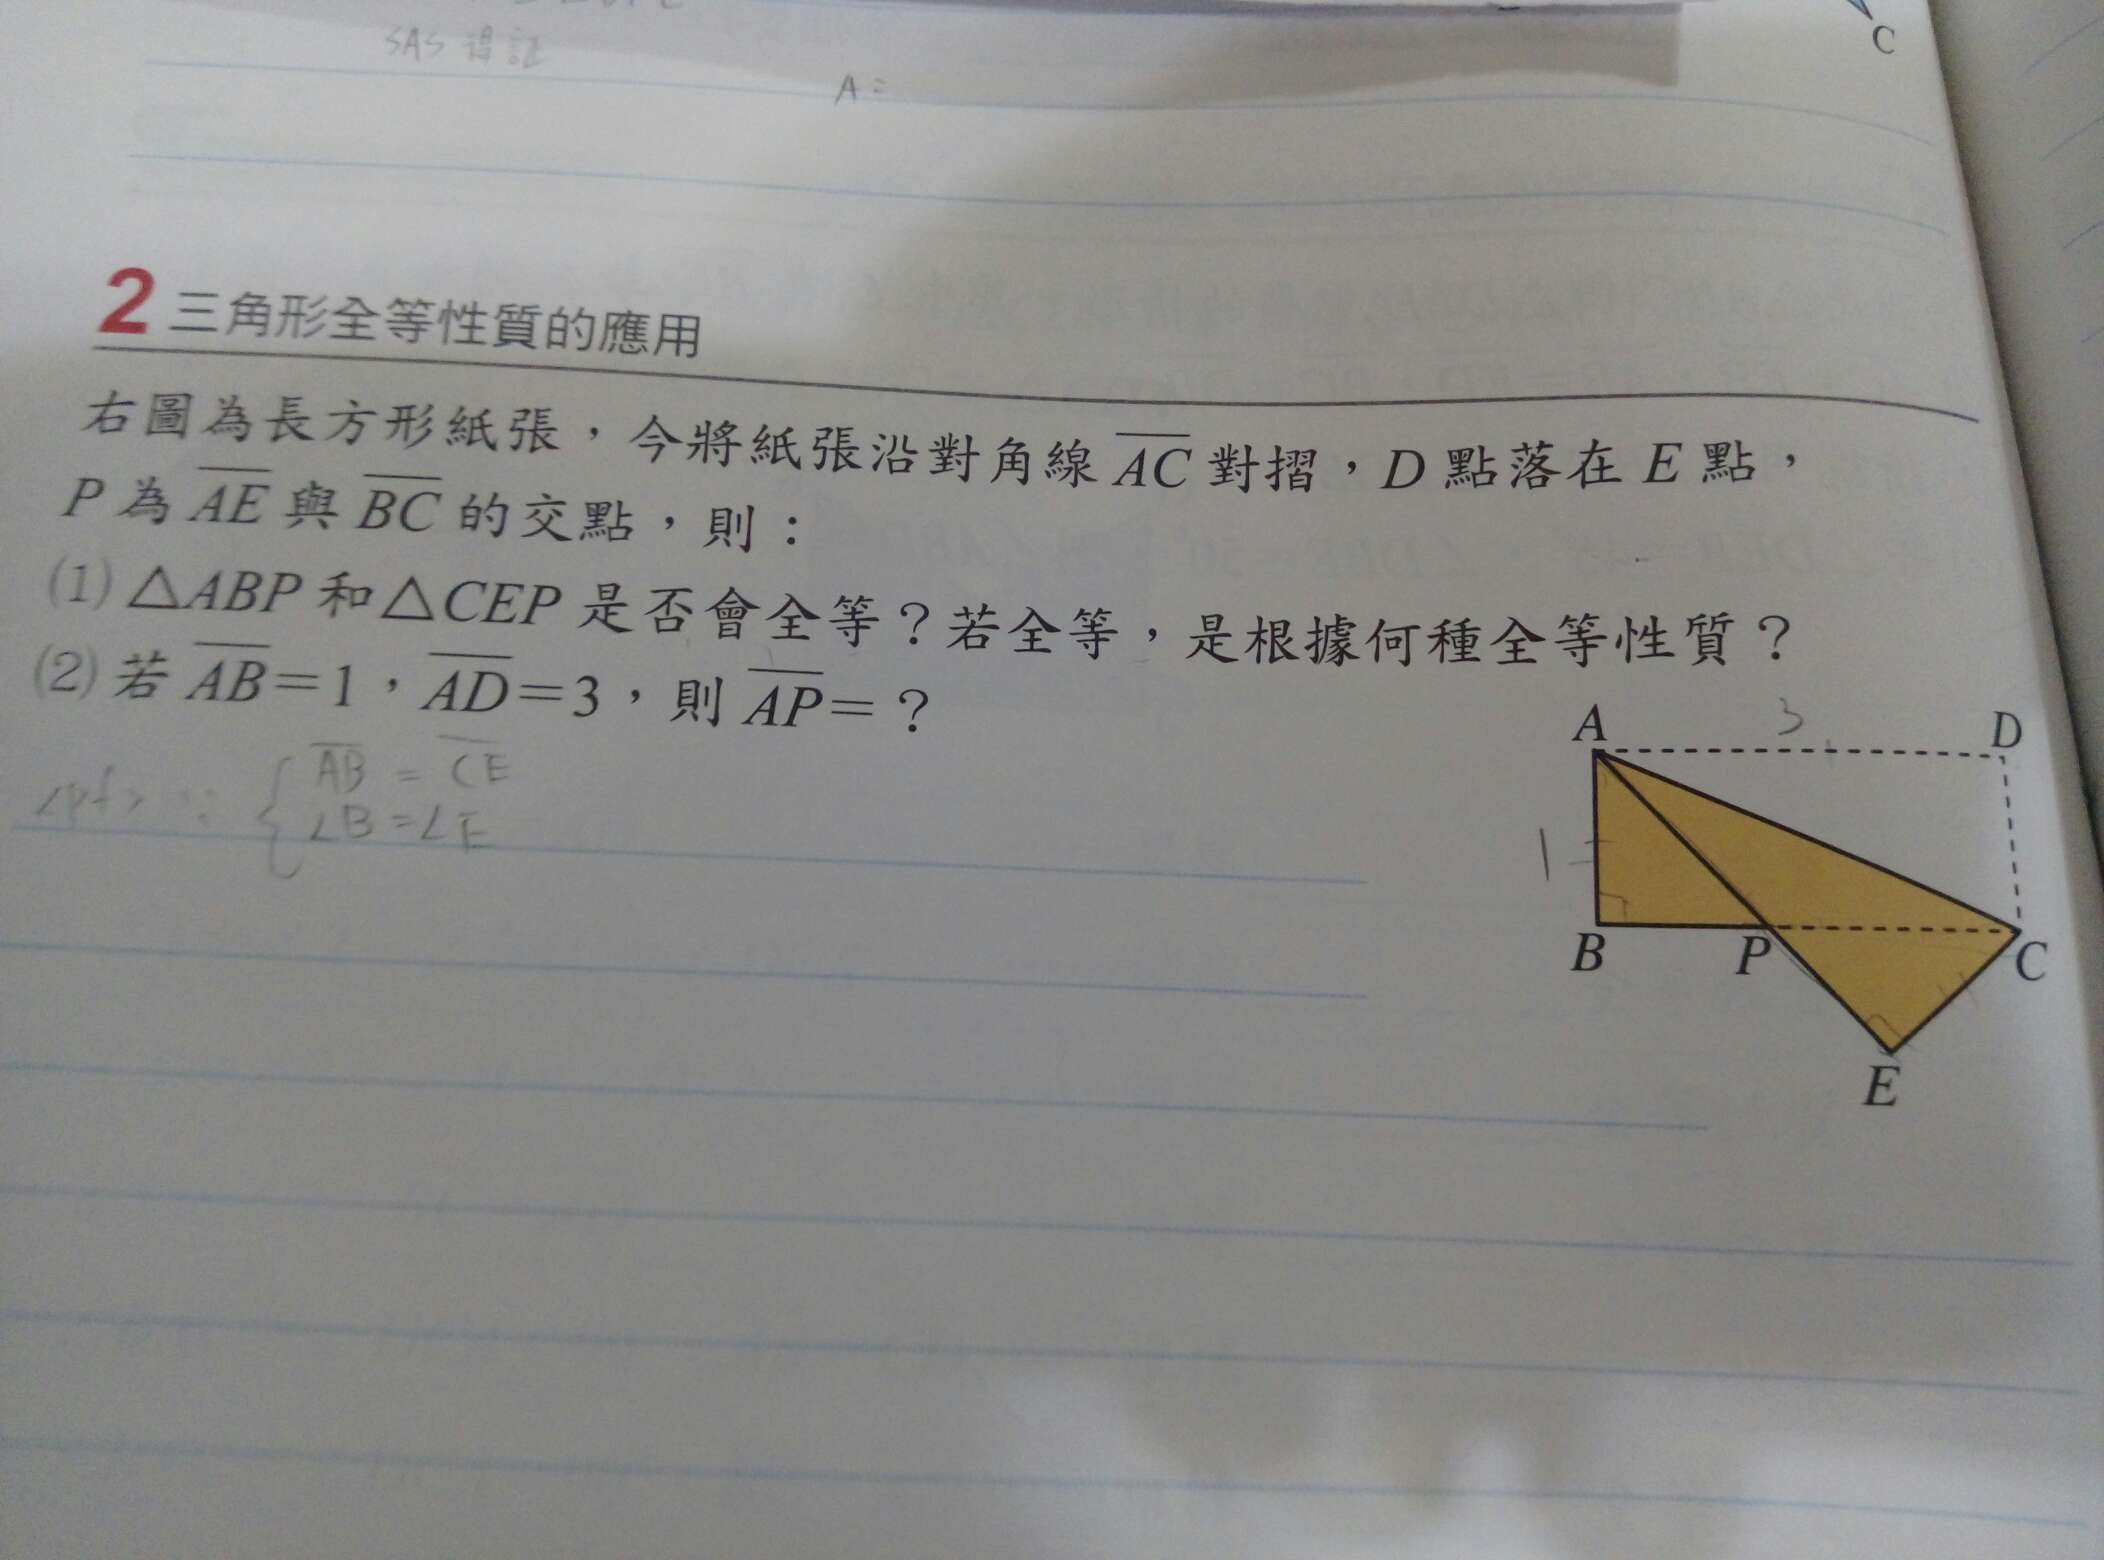 C
SAS 得証
A =
2 三角形全等性質的應用
右圖為長方形紙張，今將紙張沿對角線 AC 對摺，D 點落在 E 點，
P 為 AE 與 BC 的交點，則：
(1) △ABP 和 △CEP 是否會全等？若全等，是根據何種全等性質？
(2) 若 AB=1，AD=3，則 AP=？
<pf> ∵ { AB = CE
∠B = ∠E
A 3 D
1
B P C
E